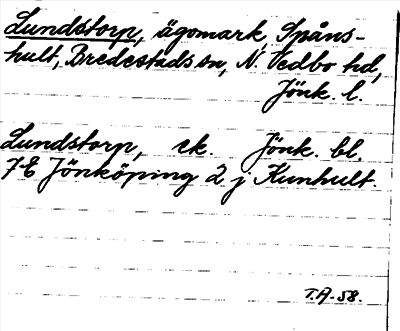 Lundstorp, ägomark, Spåns-
hult, Bredestads sn, N. Vedbo hd,
Jönk. l.
Lundstorp, ek. Jönk. bl.
7E Jönköping 2 j Kunhult.
T.A-58.